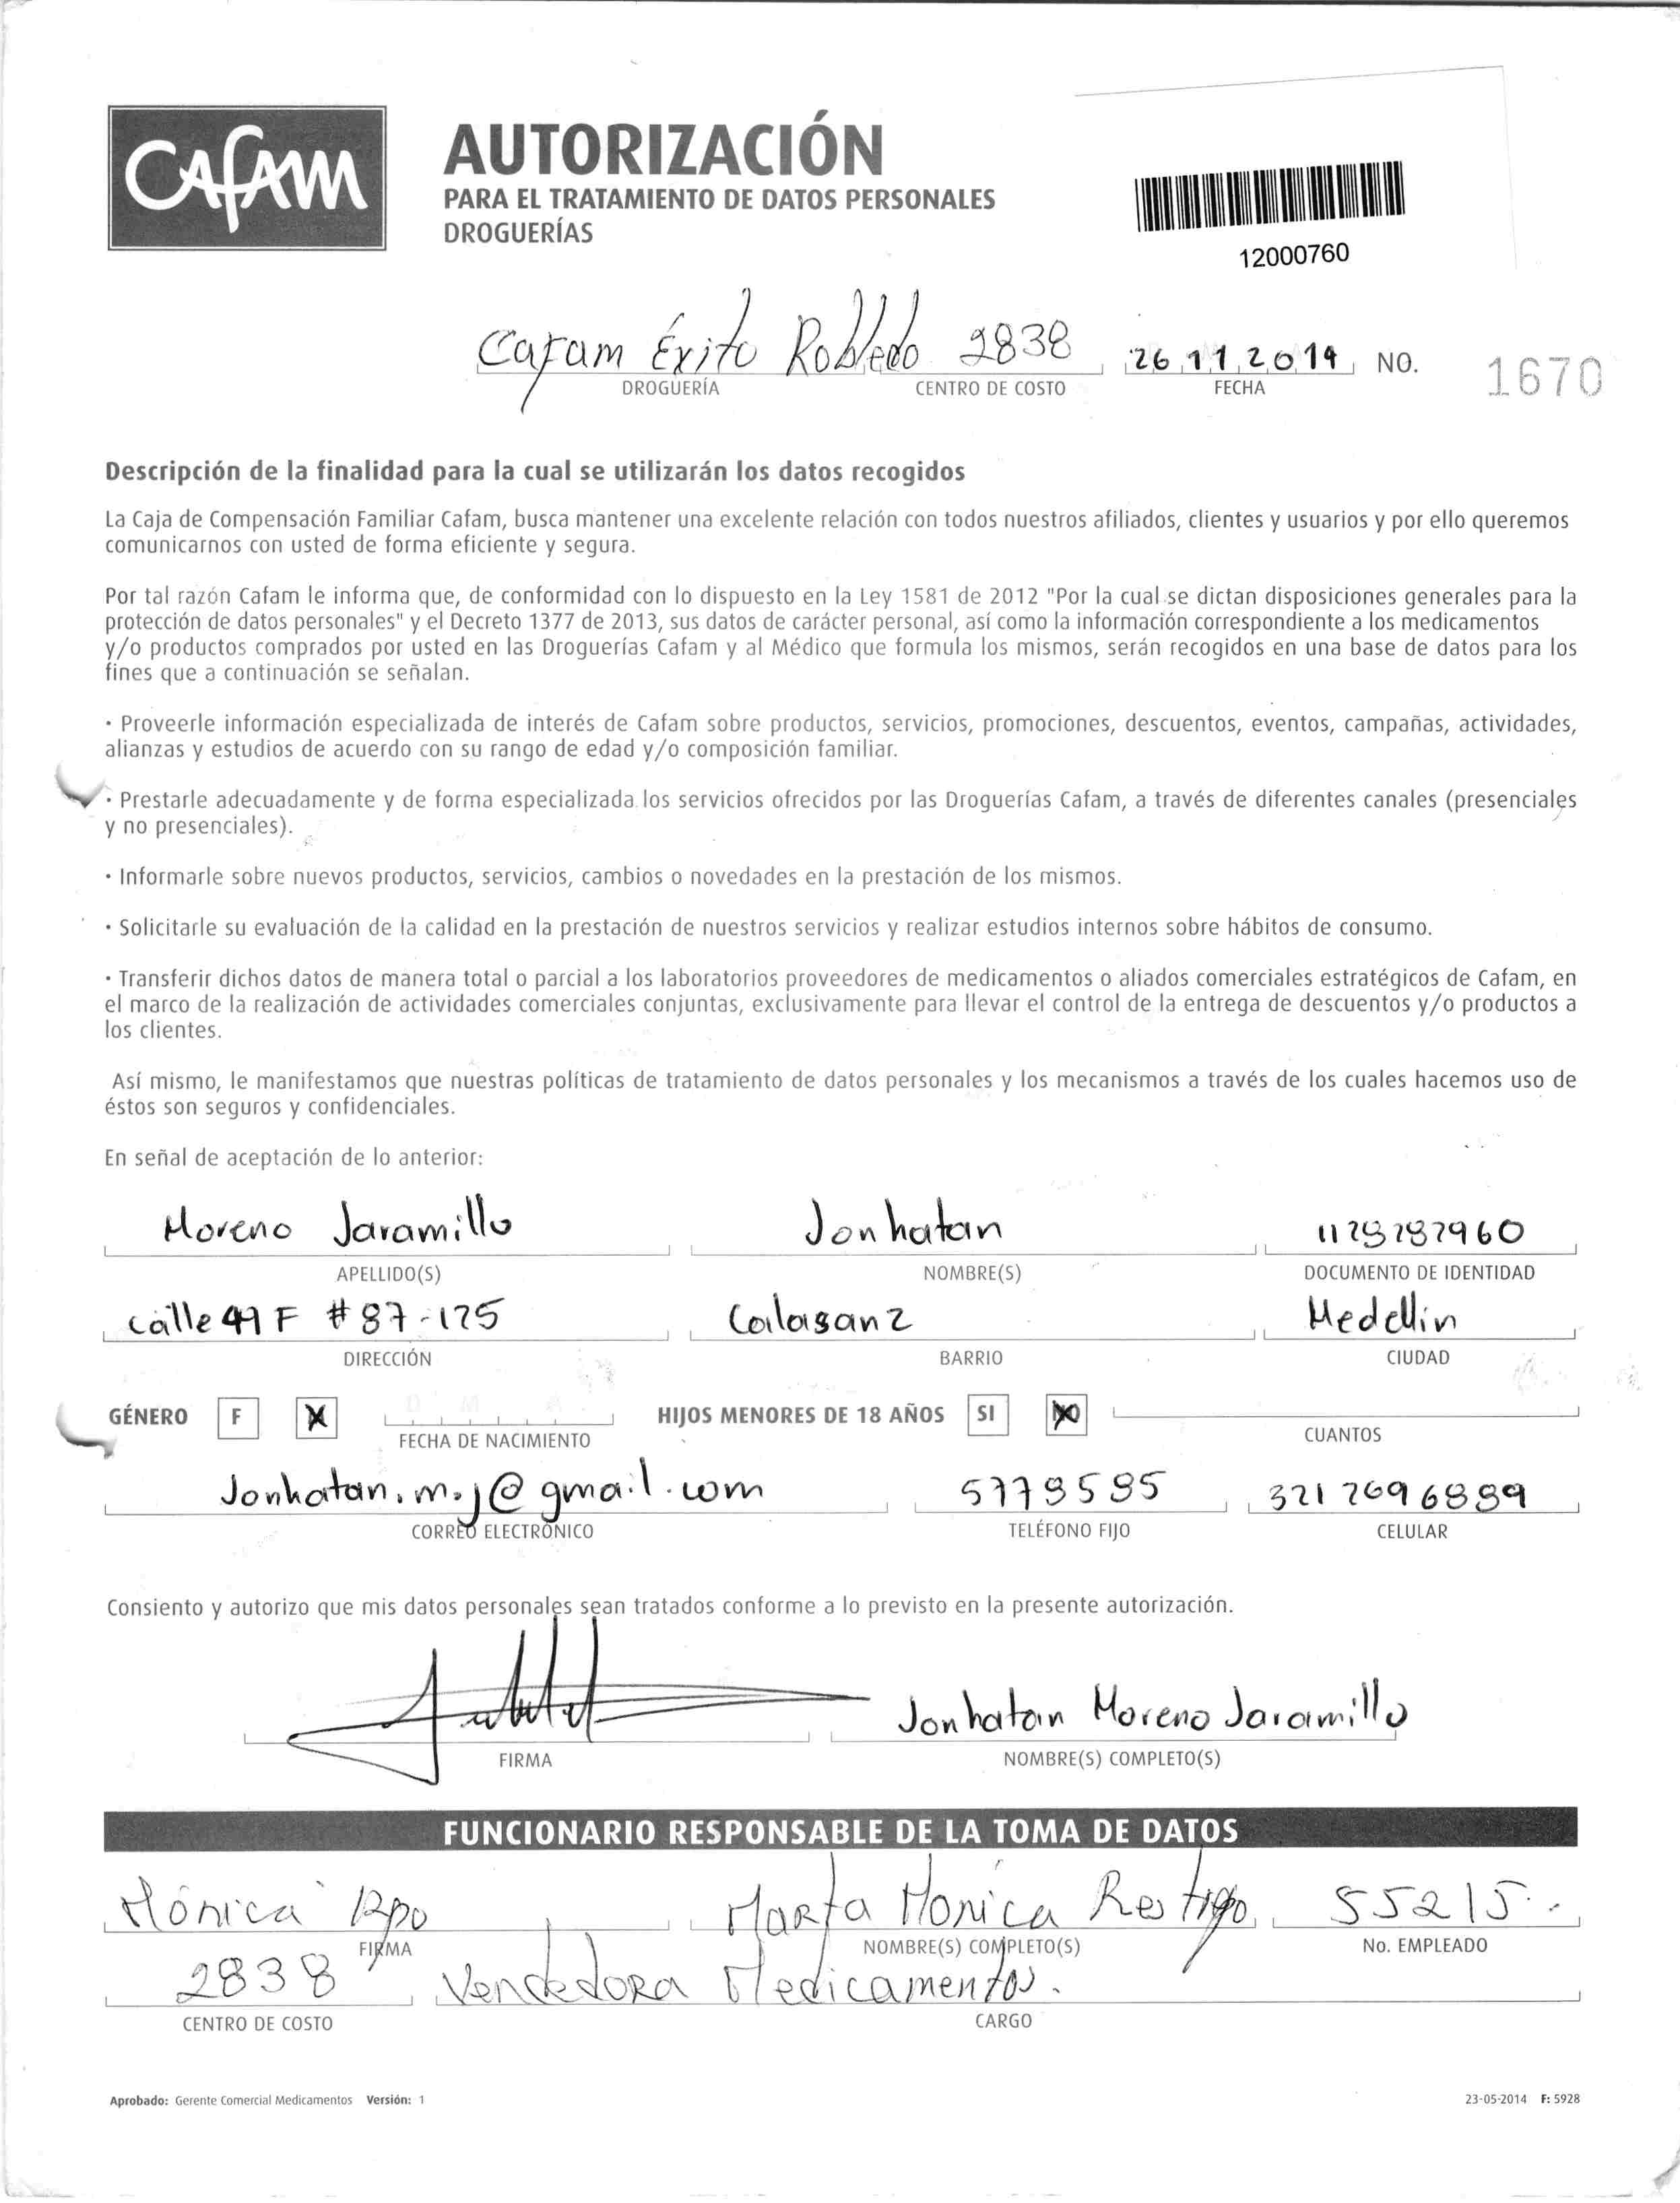 Cafam
AUTORIZACIÓN
PARA EL TRATAMIENTO DE DATOS PERSONALES
DROGUERÍAS
12000760
Cafam Éxito Robledo 2838 26 11 2014 NO. 1670
DROGUERÍA CENTRO DE COSTO FECHA
Descripción de la finalidad para la cual se utilizarán los datos recogidos
La Caja de Compensación Familiar Cafam, busca mantener una excelente relación con todos nuestros afiliados, clientes y usuarios y por ello queremos
comunicarnos con usted de forma eficiente y segura.
Por tal razón Cafam le informa que, de conformidad con lo dispuesto en la Ley 1581 de 2012 "Por la cual se dictan disposiciones generales para la
protección de datos personales" y el Decreto 1377 de 2013, sus datos de carácter personal, así como la información correspondiente a los medicamentos
y/o productos comprados por usted en las Droguerías Cafam y al Médico que formula los mismos, serán recogidos en una base de datos para los
fines que a continuación se señalan.
· Proveerle información especializada de interés de Cafam sobre productos, servicios, promociones, descuentos, eventos, campañas, actividades,
alianzas y estudios de acuerdo con su rango de edad y/o composición familiar.
· Prestarle adecuadamente y de forma especializada los servicios ofrecidos por las Droguerías Cafam, a través de diferentes canales (presenciales
y no presenciales).
· Informarle sobre nuevos productos, servicios, cambios o novedades en la prestación de los mismos.
· Solicitarle su evaluación de la calidad en la prestación de nuestros servicios y realizar estudios internos sobre hábitos de consumo.
· Transferir dichos datos de manera total o parcial a los laboratorios proveedores de medicamentos o aliados comerciales estratégicos de Cafam, en
el marco de la realización de actividades comerciales conjuntas, exclusivamente para llevar el control de la entrega de descuentos y/o productos a
los clientes.
Así mismo, le manifestamos que nuestras políticas de tratamiento de datos personales y los mecanismos a través de los cuales hacemos uso de
éstos son seguros y confidenciales.
En señal de aceptación de lo anterior:
Moreno Jaramillo Jonhatan
APELLIDO(S) NOMBRE(S) DOCUMENTO DE IDENTIDAD
calle 49 F # 87-125 Calasanz Medellin
DIRECCIÓN BARRIO CIUDAD
GÉNERO F X HIJOS MENORES DE 18 AÑOS SI NO
FECHA DE NACIMIENTO CUANTOS
Jonhatan.m.j@gmail.com
CORREO ELECTRÓNICO TELÉFONO FIJO CELULAR
Consiento y autorizo que mis datos personales sean tratados conforme a lo previsto en la presente autorización.
Jonhatan Moreno Jaramillo
FIRMA NOMBRE(S) COMPLETO(S)
FUNCIONARIO RESPONSABLE DE LA TOMA DE DATOS
Mónica Rpo Marta Monica Restrepo 55215
FIRMA NOMBRE(S) COMPLETO(S) No. EMPLEADO
2838 Vendedora Medicamentos.
CENTRO DE COSTO CARGO
Aprobado: Gerente Comercial Medicamentos Versión: 1 23-05-2014 F: 5928